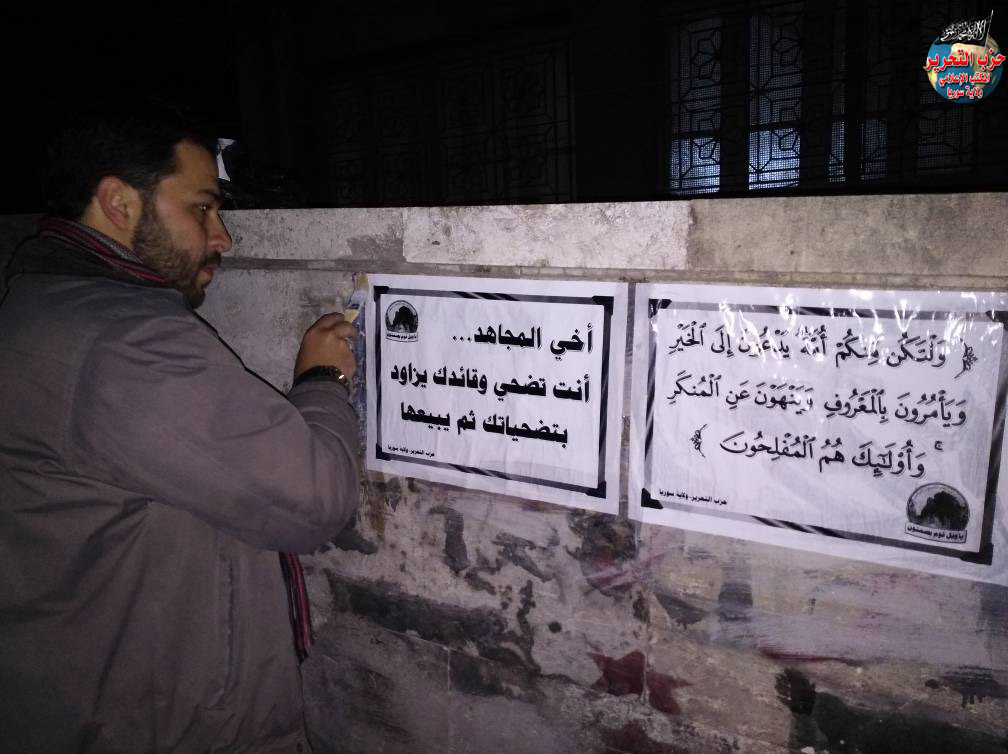 حزب التحرير
المكتب الإعلامي
ولاية سوريا
أخي المجاهد...
أنت تضحي وقائدك يزاود
بتضحياتك ثم يبيعها
حزب التحرير- ولاية سوريا
وَلْتَكُن مِّنكُمْ أُمَّةٌ يَدْعُونَ إِلَى ٱلْخَيْرِ
وَيَأْمُرُونَ بِٱلْمَعْرُوفِ وَيَنْهَوْنَ عَنِ ٱلْمُنكَرِ
وَأُو۟لَـٰٓئِكَ هُمُ ٱلْمُفْلِحُونَ
حزب التحرير- ولاية سوريا